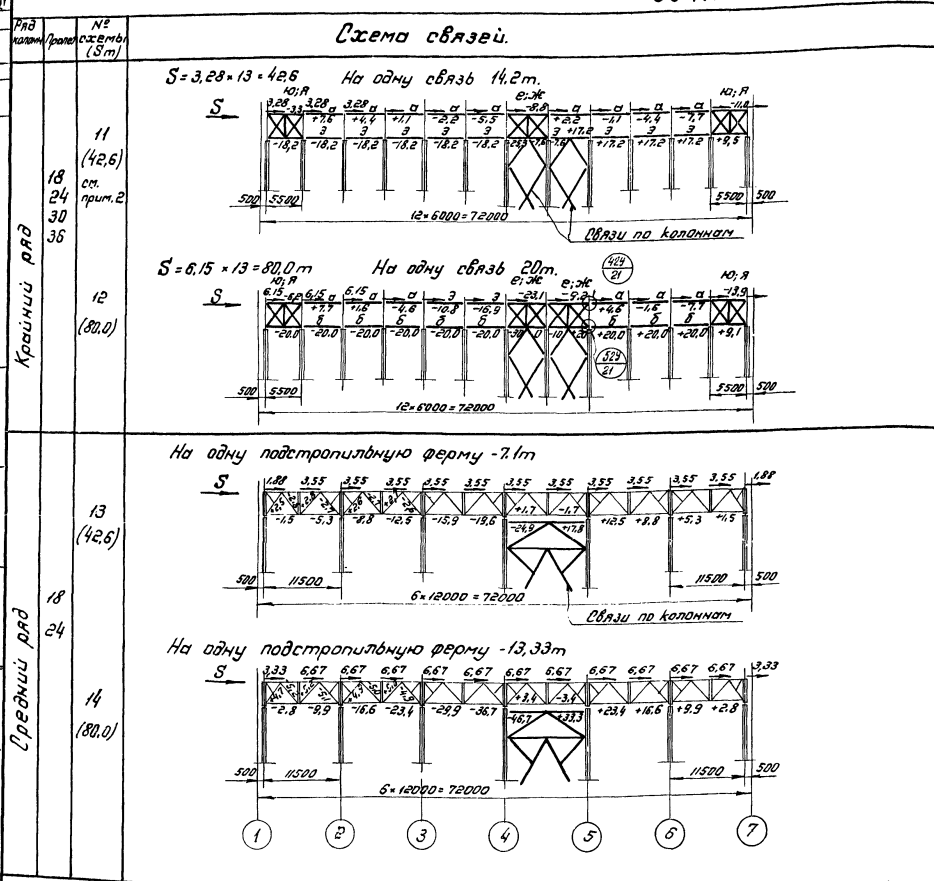 Ряд колонн
Пролет
№ схемы (Sт)
Схема связей.
Крайний ряд
18
24
30
36
11
(42,6)
см. прим.2
S = 3,28 × 13 = 42,6 На одну связь 14,2т.
Ю; Я е; Ж Ю; Я
S 3,28 -3,3 3,28 а 3,28 а а а а -8,8 а а а а -11,0
+7,6 +4,4 +1,1 -2,2 -5,5 +2,2 -1,1 -4,4 -7,7
Э Э Э Э Э Э Э Э Э
-18,2 -18,2 -18,2 -18,2 -18,2 -18,2 -7,6 -7,6 +17,2 +17,2 +17,2 +17,2 +9,5
500 5500 5500 500
12×6000 = 72000
Связи по колоннам
12
(80,0)
S = 6,15 × 13 = 80,0 т На одну связь 20т.
424
21
Ю; Я е; Ж е; Ж Ю; Я
S 6,15 -6,2 6,15 а 6,15 а а Э Э -23,1 -9,2 а а а -13,9
+7,7 +1,6 -4,6 -10,8 -16,9 +4,6 -1,6 -7,7
б б б б б б б б
-20,0 -20,0 -20,0 -20,0 -20,0 -20,0 +20,0 +20,0 +20,0 +9,1
524
21
500 5500 5500 500
12×6000 = 72000
Средний ряд
18
24
13
(42,6)
На одну подстропильную ферму -7,1т
S 1,88 3,55 3,55 3,55 3,55 3,55 3,55 3,55 3,55 3,55 3,55 3,55 1,88
+1,7 -1,7
-1,5 -5,3 -8,8 -12,5 -15,9 -19,6 -24,9 +17,8 +12,5 +8,8 +5,3 +1,5
500 11500 11500 500
6×12000 = 72000
Связи по колоннам
14
(80,0)
На одну подстропильную ферму -13,33т
S 3,33 6,67 6,67 6,67 6,67 6,67 6,67 6,67 6,67 6,67 6,67 6,67 3,33
+3,4 -3,4
-2,8 -9,9 -16,6 -23,4 -29,9 -36,7 -46,7 +33,3 +23,4 +16,6 +9,9 +2,8
500 11500 11500 500
6×12000 = 72000
1 2 3 4 5 6 7